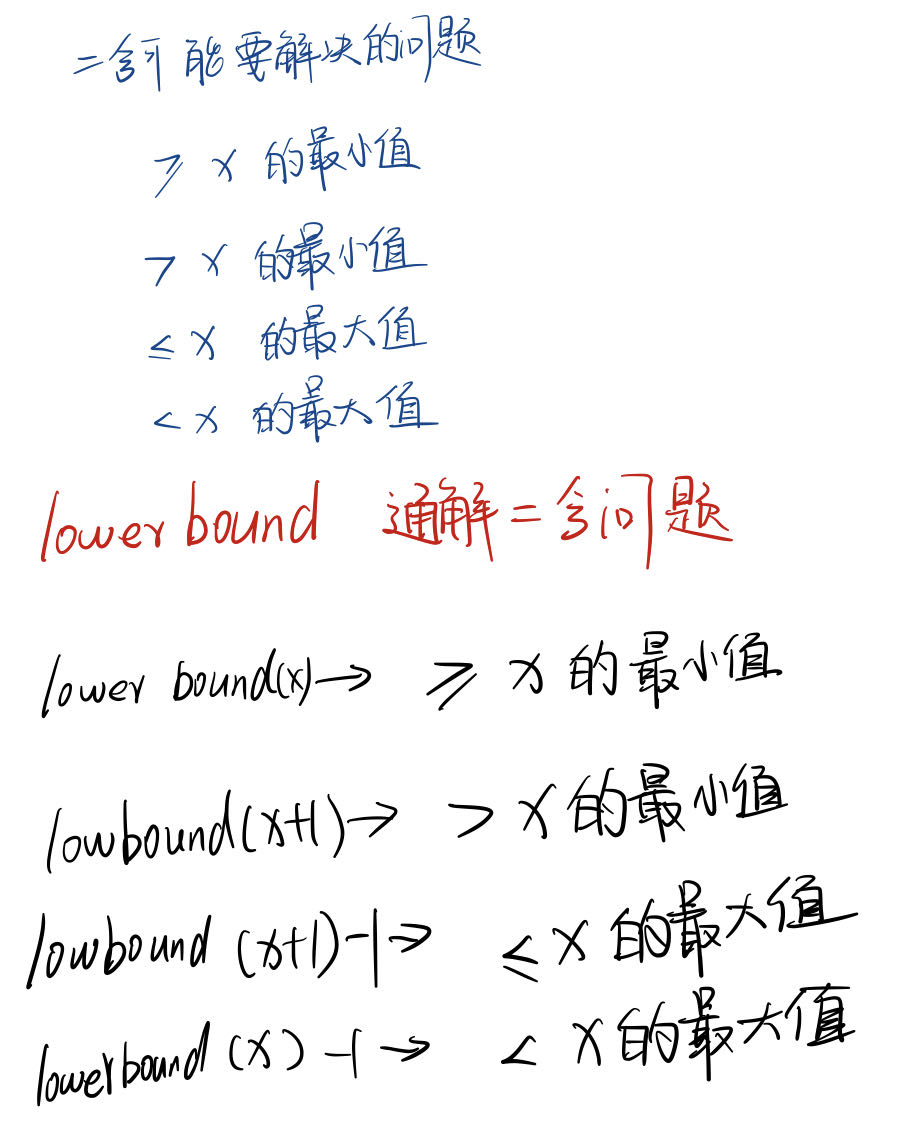 二分可能要解决的问题
≥ x 的最小值
> x 的最小值
≤ x 的最大值
< x 的最大值
lower bound 通解二分问题
lower bound(x)→ ≥ x 的最小值
lowbound(x+1)→ > x 的最小值
lowbound (x+1)-1→ ≤ x 的最大值
lowerbound (x) -1→ < x 的最大值